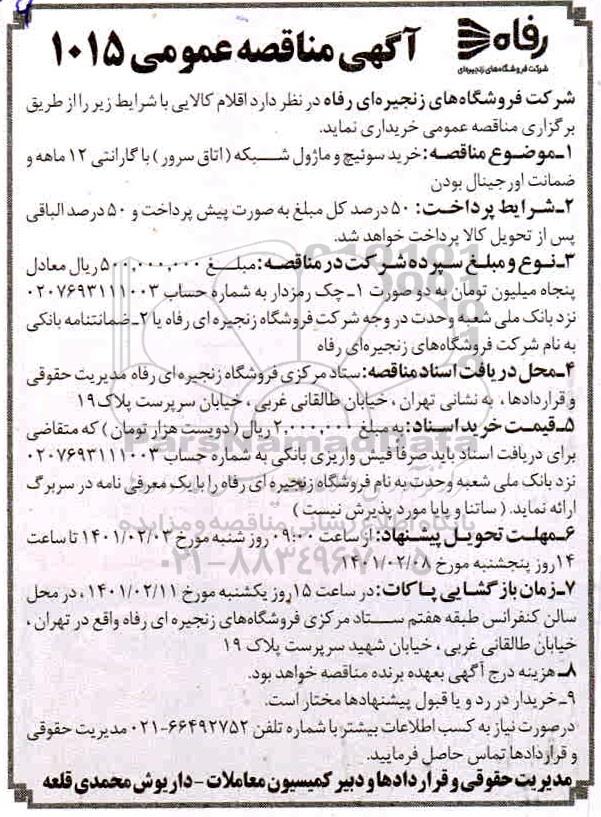 رفاه
شرکت فروشگاه‌های زنجیره‌ای
آگهی مناقصه عمومی ۱۰۱۵
شرکت فروشگاه‌های زنجیره‌ای رفاه در نظر دارد اقلام کالایی با شرایط زیر را از طریق
برگزاری مناقصه عمومی خریداری نماید.
۱ـ موضوع مناقصه: خرید سوئیچ و ماژول شبکه (اتاق سرور) با گارانتی ۱۲ ماهه و
ضمانت اورجینال بودن
۲ـ شرایط پرداخت: ۵۰ درصد کل مبلغ به صورت پیش پرداخت و ۵۰ درصد الباقی
پس از تحویل کالا پرداخت خواهد شد.
۳ـ نوع و مبلغ سپرده شرکت در مناقصه: مبلغ ۵۰۰,۰۰۰,۰۰۰ ریال معادل
پنجاه میلیون تومان به دو صورت ۱ـ چک رمزدار به شماره حساب ۰۲۰۷۶۹۳۱۱۱۰۰۳
نزد بانک ملی شعبه وحدت در وجه شرکت فروشگاه زنجیره ای رفاه یا ۲ـ ضمانتنامه بانکی
به نام شرکت فروشگاه‌های زنجیره‌ای رفاه
۴ـ محل دریافت اسناد مناقصه: ستاد مرکزی فروشگاه زنجیره‌ای رفاه مدیریت حقوقی
و قراردادها ، به نشانی تهران ، خیابان طالقانی غربی ، خیابان سرپرست پلاک ۱۹
۵ـ قیمت خرید اسناد: به مبلغ ۲,۰۰۰,۰۰۰ ریال (دویست هزار تومان) که متقاضی
برای دریافت اسناد باید صرفاً فیش واریزی بانکی به شماره حساب ۰۲۰۷۶۹۳۱۱۱۰۰۳
نزد بانک ملی شعبه وحدت به نام فروشگاه زنجیره ای رفاه را با یک معرفی نامه در سربرگ
ارائه نماید. (ساتنا و پایا مورد پذیرش نیست)
۶ـ مهلت تحویل پیشنهاد: از ساعت ۰۹:۰۰ روز شنبه مورخ ۱۴۰۱/۰۲/۰۳ تا ساعت
۱۴ روز پنجشنبه مورخ ۱۴۰۱/۰۲/۰۸
۷ـ زمان بازگشایی پاکات: در ساعت ۱۵ روز یکشنبه مورخ ۱۴۰۱/۰۲/۱۱ ، در محل
سالن کنفرانس طبقه هفتم ستاد مرکزی فروشگاه‌های زنجیره ای رفاه واقع در تهران ،
خیابان طالقانی غربی ، خیابان شهید سرپرست پلاک ۱۹
۸ـ هزینه درج آگهی بعهده برنده مناقصه خواهد بود.
۹ـ خریدار در رد و یا قبول پیشنهادها مختار است.
در صورت نیاز به کسب اطلاعات بیشتر با شماره تلفن ۶۶۴۹۲۷۵۲-۰۲۱ مدیریت حقوقی
و قراردادها تماس حاصل فرمایید.
مدیریت حقوقی و قراردادها و دبیر کمیسیون معاملات - داریوش محمدی قلعه
ParsNamadData
پایگاه اطلاع رسانی مناقصه و مزایده